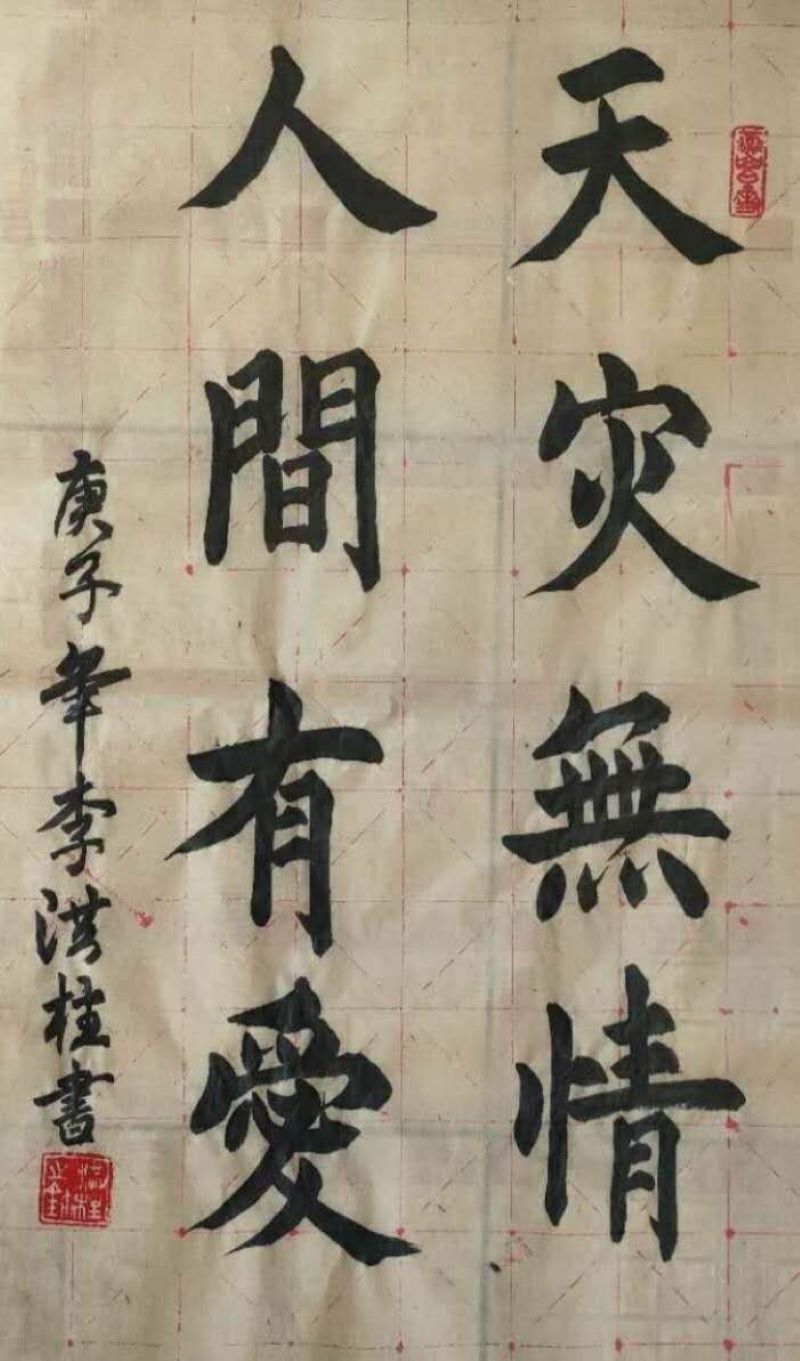 天灾無情
人間有愛
庚子年李洪桂書